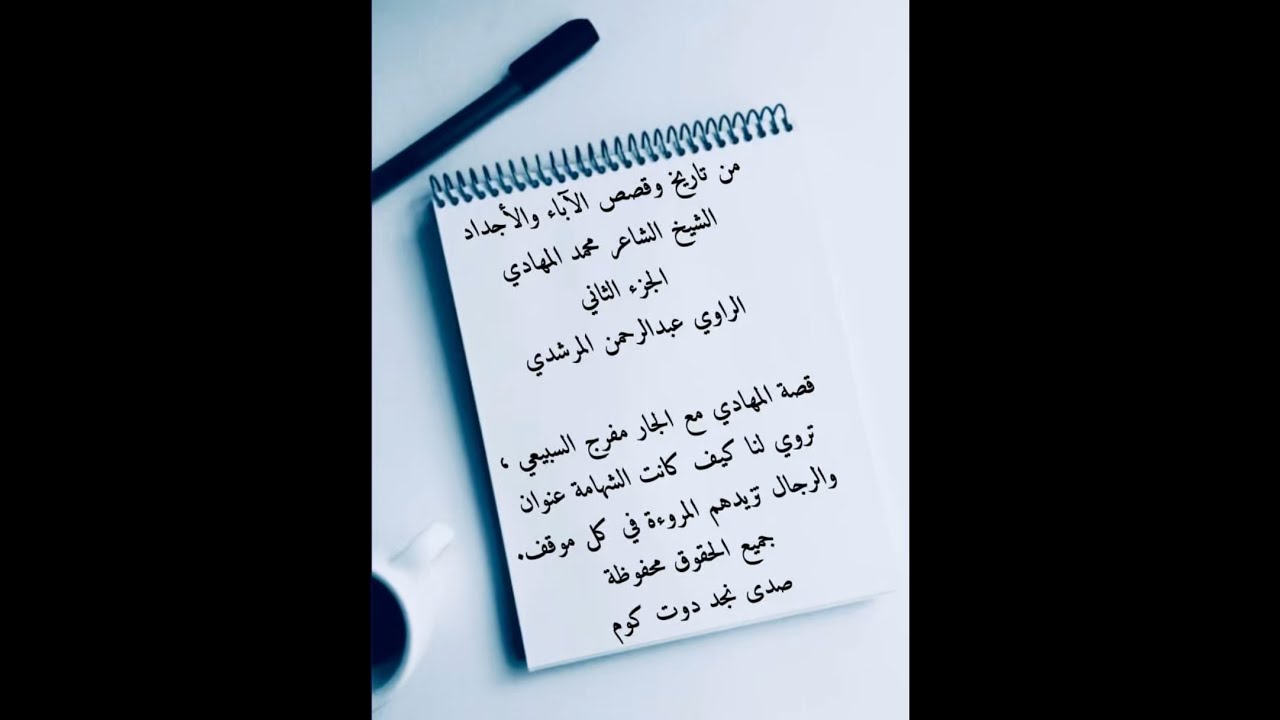 من تاريخ وقصص الآباء والأجداد
الشيخ الشاعر محمد المهادي
الجزء الثاني
الراوي عبدالرحمن المرشدي
قصة المهادي مع الجار مفرج السبيعي ،
تروي لنا كيف كانت الشهامة عنوان
والرجال تزيدهم المروءة في كل موقف.
جميع الحقوق محفوظة
صدى نجد دوت كوم